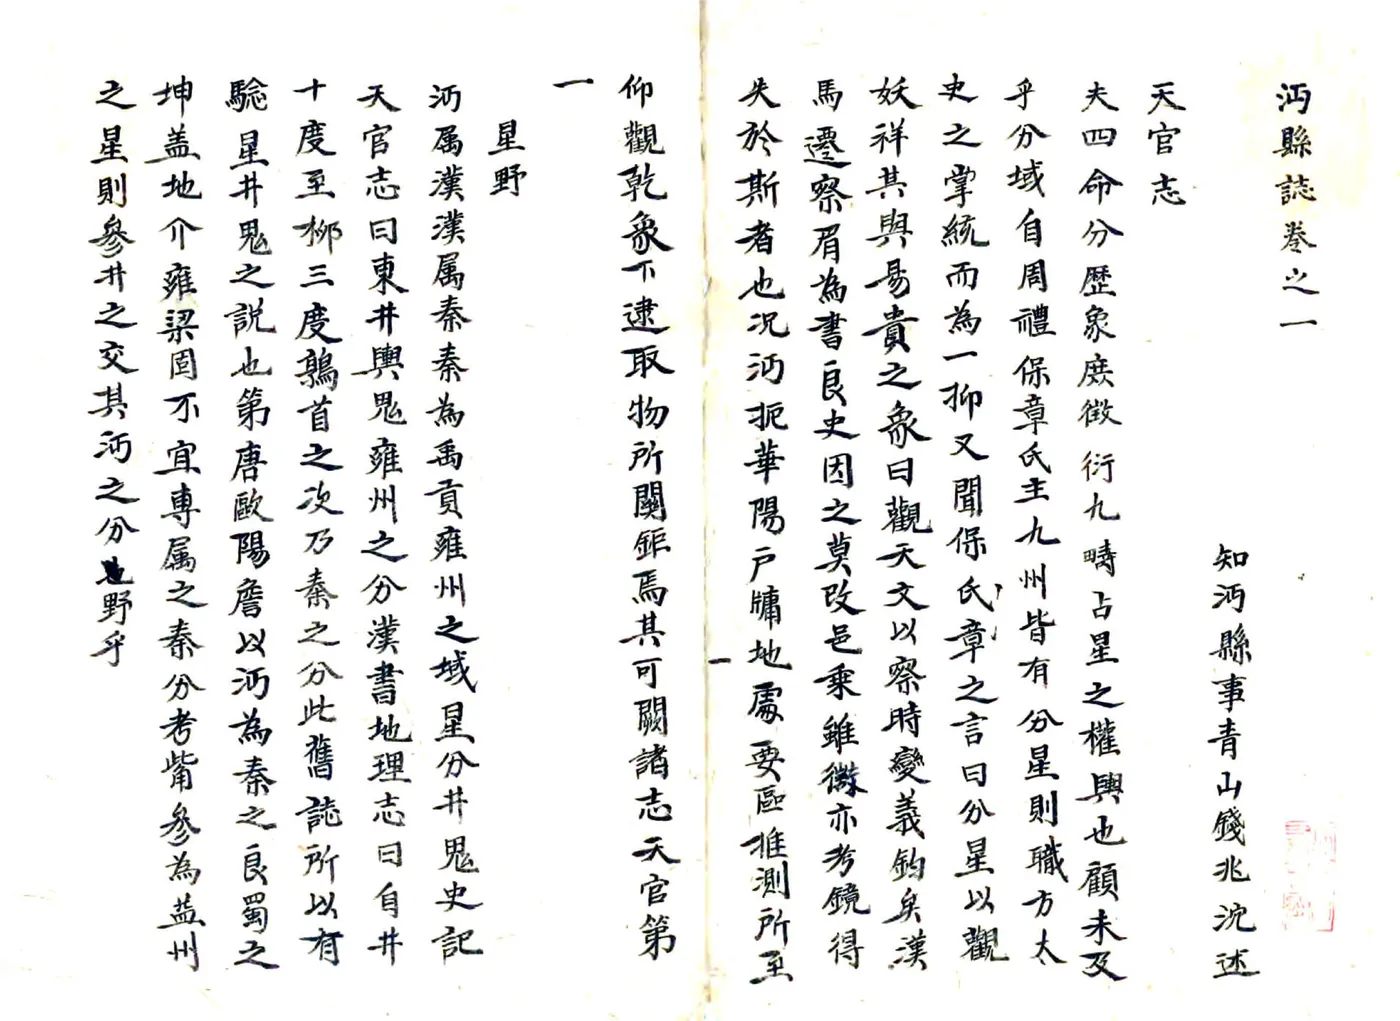 沔縣誌卷之一
知沔縣事青山錢兆沆述
天官志
夫四命分歷象庶徵衍九疇占星之權輿也顧未及
乎分域自周禮保章氏主九州皆有分星則職方太
史之掌統而為一抑又聞保氏章之言曰分星以觀
妖祥其與易賁之象曰觀天文以察時變義鈞矣漢
馬遷察眉為書良史因之莫改邑乘雖微亦考鏡得
失於斯者也况沔扼華陽戶牗地處要區推測所至
一
仰觀乾象下逮取物所關鉅焉其可闕諸志天官第
一
星野
沔属漢漢属秦秦為禹貢雍州之域星分井鬼史記
天官志曰東井輿鬼雍州之分漢書地理志曰自井
十度至柳三度鶉首之次乃秦之分此舊誌所以有
騐星井鬼之説也第唐歐陽詹以沔為秦之良蜀之
坤盖地介雍梁固不宜專属之秦分考觜參為益州
之星則參井之交其沔之分野乎